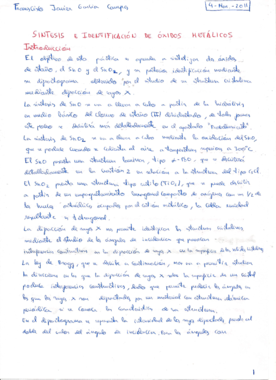 Francisco Javier García Campa
4-Mar-2011
SÍNTESIS E IDENTIFICACIÓN DE ÓXIDOS METÁLICOS
Introducción
El objetivo de esta práctica es aprender a sintetizar dos óxidos
de estaño, el SnO y el SnO₂, y su posterior identificación mediante
un difractograma obtenido por el estudio de su estructura cristalina
mediante difracción de rayos x.
La síntesis de SnO se va a llevar a cabo a partir de
en medio básico del cloruro de estaño (II) dihidratado, de todas formas
este proceso se describe más detalladamente en el apartado "Procedimiento".
La síntesis de SnO₂ se va a llevar a cabo mediante la oxidación del SnO,
que se produce cuando se calienta al aire a temperatura superior a 300°C.
El SnO puede una estructura
detalladamente en la cuestión 2 en relación a la estructura del tipo CsCl.
El SnO₂ posee una estructura tipo rutilo (TiO₂), que se puede describir
a partir de un empaquetamiento hexagonal compacto de oxígenos con ½ de
los huecos octaédricos ocupados por el catión metálico, la celda unidad
resultante es tetragonal.
La difracción de rayos x nos permite identificar la estructura cristalina
mediante el estudio de los ángulos de incidencia que provocan
interferencias constructivas en la difracción de rayos x en la superficie
La ley de Bragg, que se describe a continuación, nos va a permitir estudiar
las direcciones en las que la difracción de rayos x sobre la superficie de un cristal
produce interferencias constructivas, dado que permite predecir los ángulos en
los que los rayos x son difractados por un material con estructura atómica
periódica, si se conoce la constante de su estructura.
En el difractograma se representa la intensidad de los rayos difractados frente al
doble del valor del ángulo de incidencia. Con los ángulos con
1